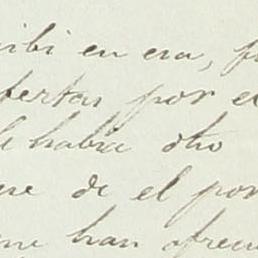 cibi en esa, p
fertas por e
le habia otro
ue de el por
me han ofreci